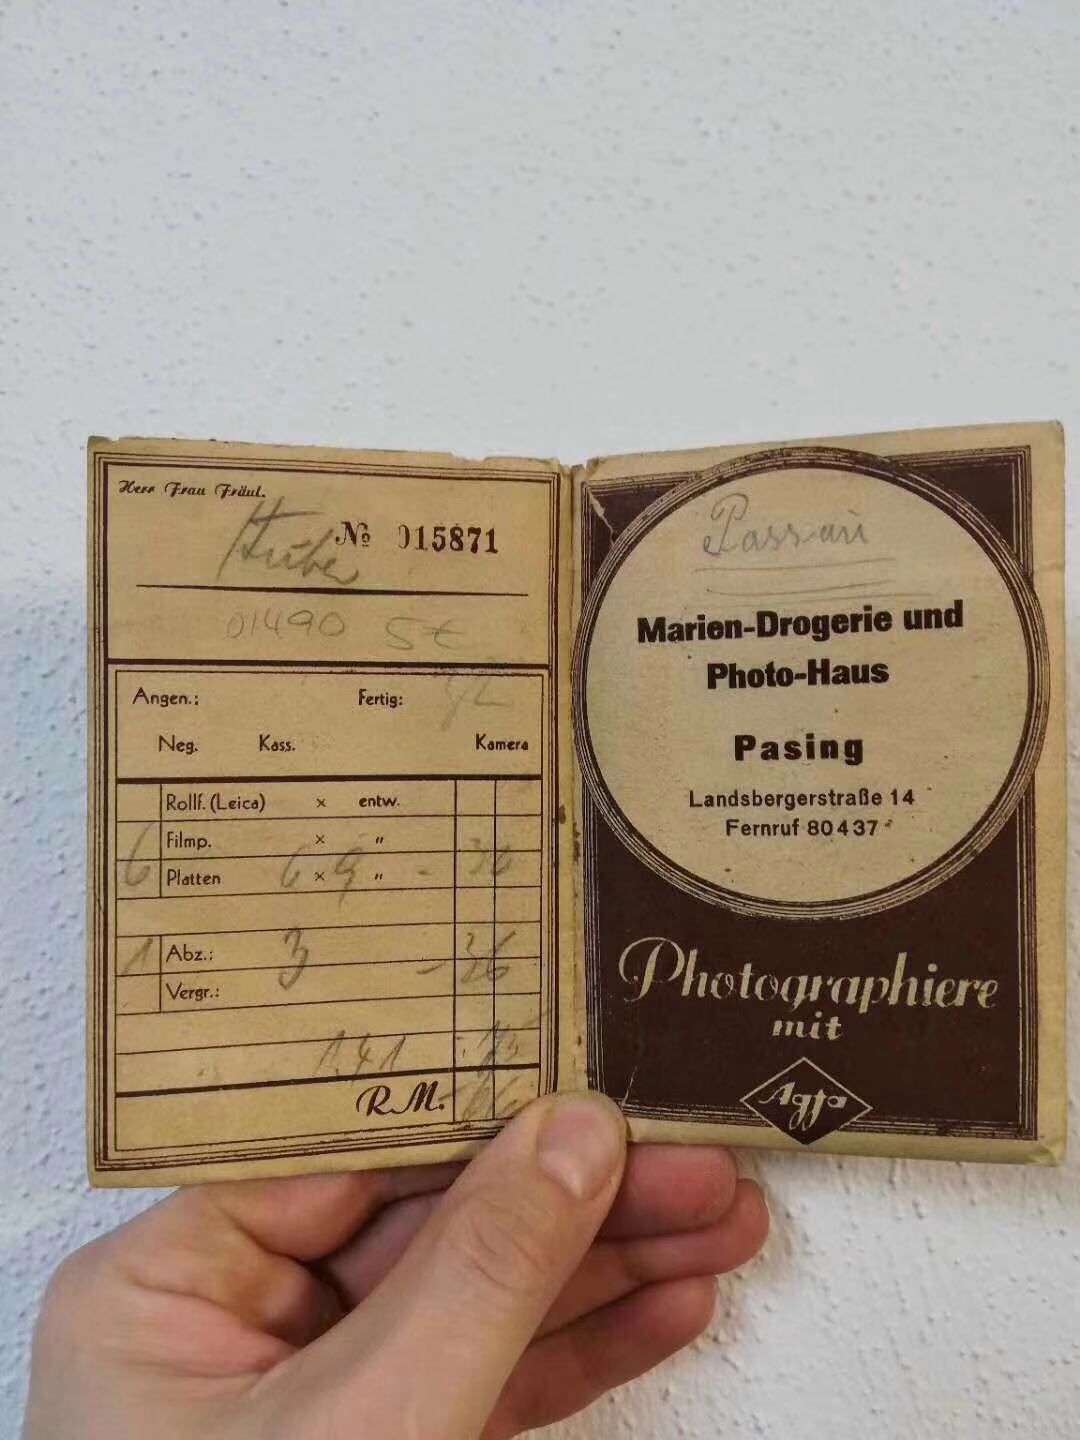 Herr Frau Fräul.
Huber
№ 015871
01490 5€
Angen.: Fertig:
Neg. Kass. Kamera
Rollf. (Leica) x entw.
Filmp. x "
6 Platten 6 x 9 " - 36
1 Abz.: 3 - 36
Vergr.:
R.M.
Passau
Marien-Drogerie und
Photo-Haus
Pasing
Landsbergerstraße 14
Fernruf 80437
Photographiere
mit
Agfa